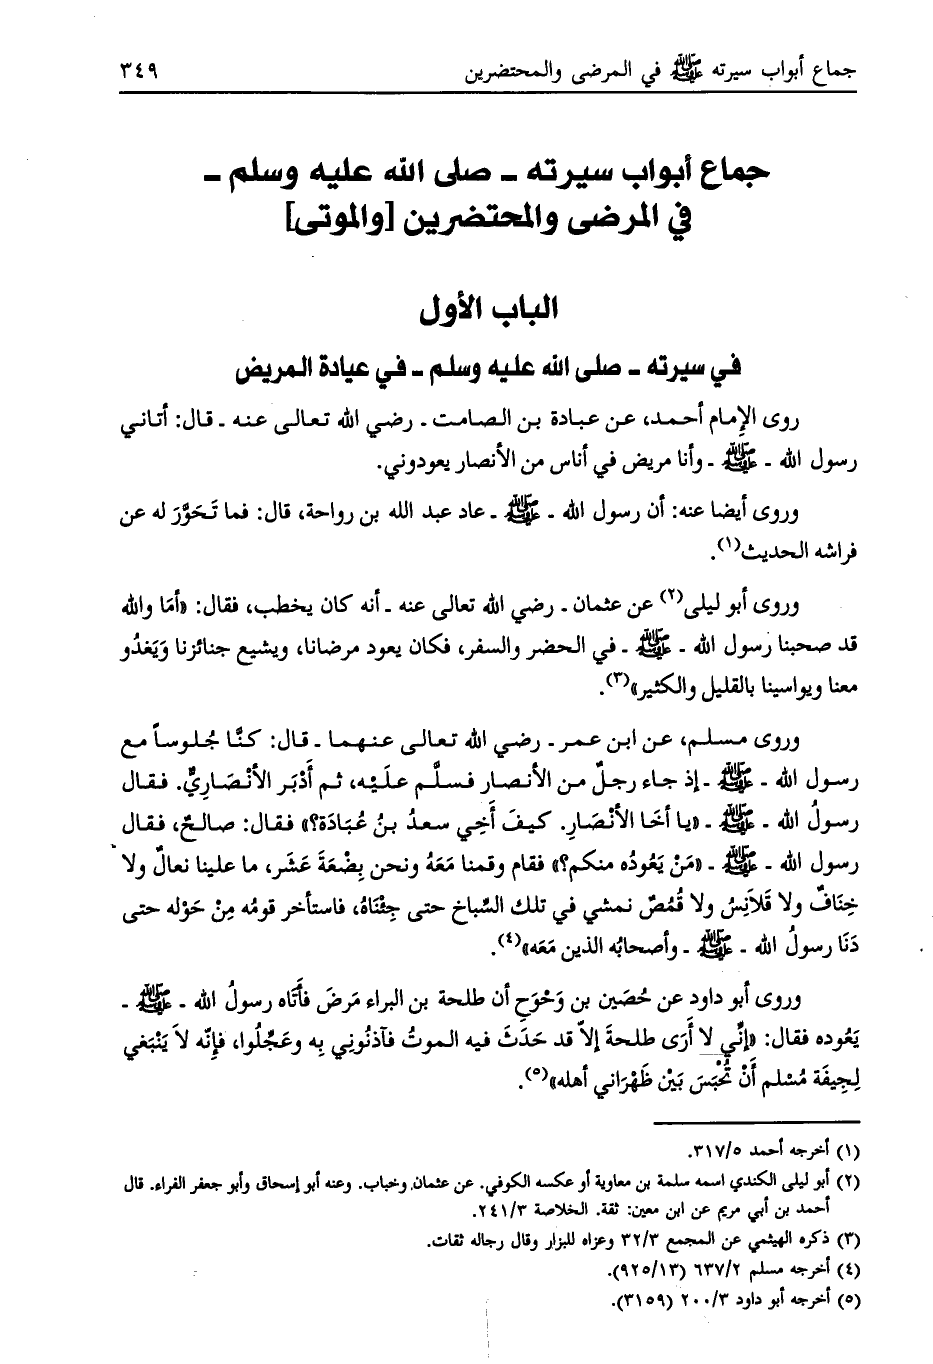 جماع أبواب سيرته ﷺ في المرضى والمحتضرين ٣٤٩
جماع أبواب سيرته - صلى الله عليه وسلم -
في المرضى والمحتضرين [والموتى]
الباب الأول
في سيرته - صلى الله عليه وسلم - في عيادة المريض
روى الإمام أحمد، عن عبادة بن الصامت - رضي الله تعالى عنه - قال: أتاني
رسول الله - ﷺ - وأنا مريض في أناس من الأنصار يعودوني.
وروى أيضا عنه: أن رسول الله - ﷺ - عاد عبد الله بن رواحة، قال: فما تَحَوَّرَ له عن
فراشه الحديث(١).
وروى أبو ليلى(٢) عن عثمان - رضي الله تعالى عنه - أنه كان يخطب، فقال: «أمَا والله
قد صحبنا رسول الله - ﷺ - في الحضر والسفر، فكان يعود مرضانا، ويشيع جنائزنا وَيَغدُو
معنا ويواسينا بالقليل والكثير»(٣).
وروى مسلم، عن ابن عمر - رضي الله تعالى عنهما - قال: كنَّا جُلوساً مع
رسول الله - ﷺ - إذ جاء رجلٌ من الأنصار فسلَّم علَيْه، ثم أَدْبَر الأنْصَاريُّ. فقال
رسولُ الله - ﷺ - «يا أخَا الأنْصَارِ. كيفَ أَخِي سعدُ بنُ عُبَادَة؟» فقال: صالحٌ، فقال
رسول الله - ﷺ - «مَنْ يَعُودُه منكم؟» فقام وقمنا مَعَهُ ونحن بِضْعَةَ عَشَر، ما علينا نعالٌ ولا
خِفَافٌ ولا قَلَانِسُ ولا قُمُصٌ نمشي في تلك السِّباخ حتى جِئْنَاهُ، فاستأخر قومُه مِنْ حَوْله حتى
دَنَا رسولُ الله - ﷺ - وأصحابُه الذين مَعَه»(٤).
وروى أبو داود عن حُصَين بن وَحْوَحِ أن طلحة بن البراء مَرضَ فأَتَاه رسولُ الله - ﷺ -
يَعُوده فقال: «إنِّي لا أَرَى طلحةَ إلاّ قد حَدَثَ فيه الموتُ فآذنُوني به وعَجِّلُوا، فإنّه لاَ يَنْبَغي
لِجيفَة مُسْلم أَنْ تُحْبَسَ بَيْن ظَهْرَاني أهله»(٥).
(١) أخرجه أحمد ٣١٧/٥.
(٢) أبو ليلى الكندي اسمه سلمة بن معاوية أو عكسه الكوفي. عن عثمان وخباب. وعنه أبو إسحاق وأبو جعفر الفراء. قال
أحمد بن أبي مريم عن ابن معين: ثقة. الخلاصة ٢٤١/٣.
(٣) ذكره الهيثمي عن المجمع ٣٢/٣ وعزاه للبزار وقال رجاله ثقات.
(٤) أخرجه مسلم ٦٣٧/٢ (٩٢٥/١٣).
(٥) أخرجه أبو داود ٢٠٠/٣ (٣١٥٩).